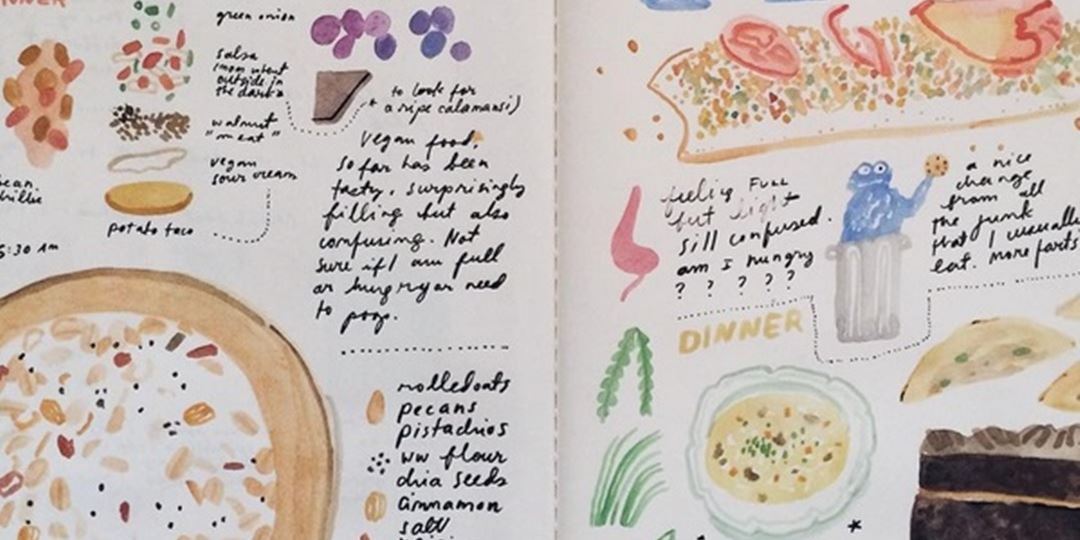 NNER
green onion
salsa
(mom went
outside in
the dark
to look for
a ripe calamansi)
walnut
"meat"
vegan
sour cream
potato taco
5:30 AM
Vegan food,
so far has been
tasty, surprisingly
filling but also
confusing. Not
sure if I am full
or hungry or need
to poop.
rolled oats
pecans
pistachios
ww flour
chia seeds
cinnamon
salt
feeling FULL
but light
sill confused.
am I hungry
? ? ? ? ?
a nice
change
from all
the junk
that I usually
eat. More farts
DINNER
*